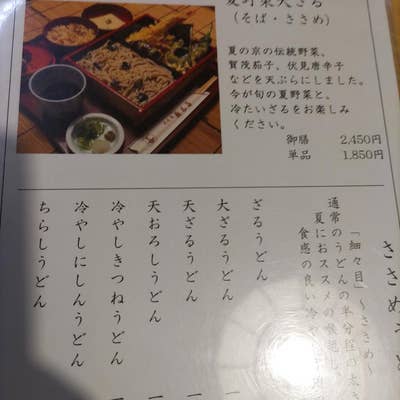 夏野菜天ざる
（そば・ささめ）
夏の京の伝統野菜、
賀茂茄子、伏見唐辛子
などを天ぷらにしました。
今が旬の夏野菜と、
冷たいざるをお楽しみ
ください。
御膳 2,450円
単品 1,850円
「細々目」～ささめ～
通常のうどんの半分程の太さ
夏におススメの
食感の良い冷や
ざるうどん
大ざるうどん
天ざるうどん
天おろしうどん
冷やしきつねうどん
冷やしにしんうどん
ちらしうどん